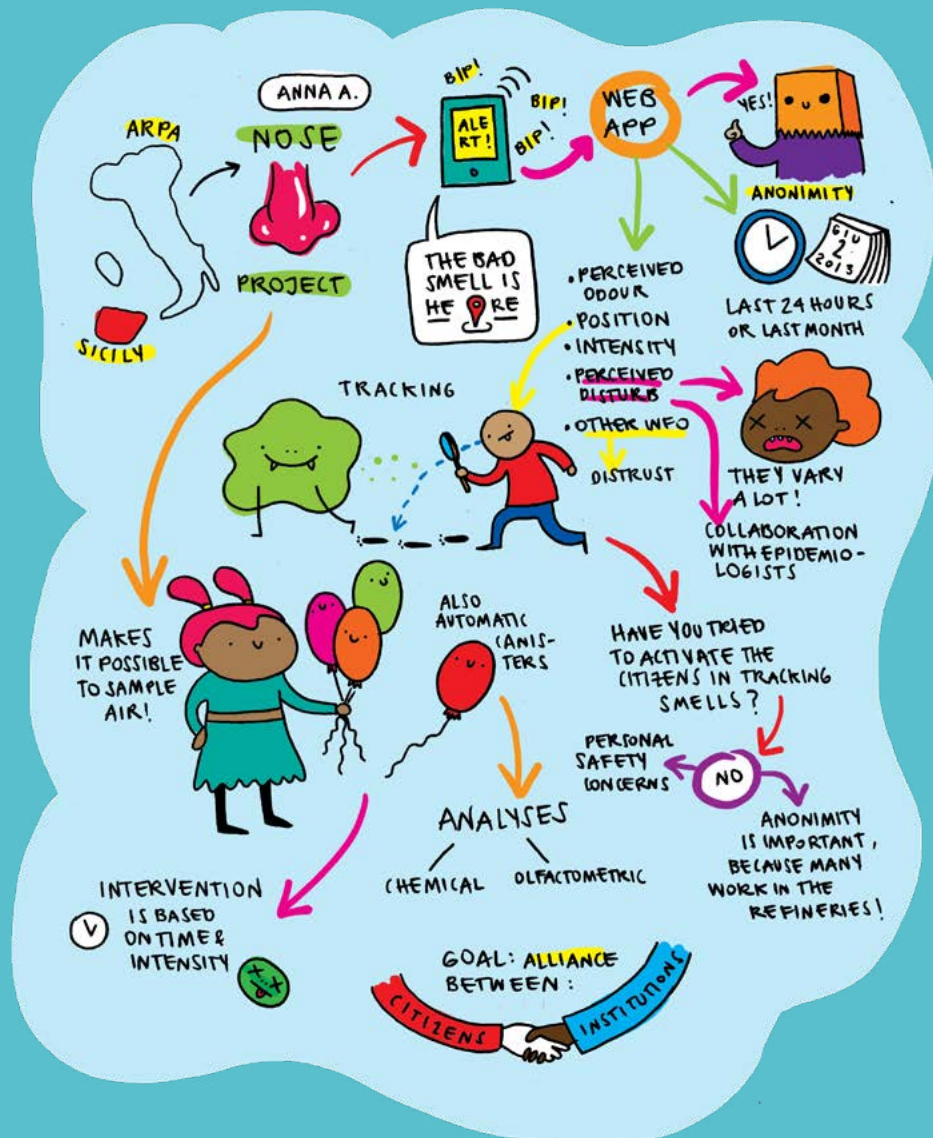 ANNA A.
ARPA
NOSE
PROJECT
SICILY
BIP!
BIP!
BIP!
ALE
RT!
THE BAD
SMELL IS
HE RE
WEB
APP
YES!
ANONIMITY
GIU
2
2013
LAST 24 HOURS
OR LAST MONTH
• PERCEIVED
ODOUR
• POSITION
• INTENSITY
• PERCEIVED
DISTURB
• OTHER INFO
DISTRUST
THEY VARY
A LOT!
COLLABORATION
WITH EPIDEMIO-
LOGISTS
TRACKING
MAKES
IT POSSIBLE
TO SAMPLE
AIR!
ALSO
AUTOMATIC
CANIS-
TERS
HAVE YOU TRIED
TO ACTIVATE THE
CITIZENS IN TRACKING
SMELLS?
NO
PERSONAL
SAFETY
CONCERNS
ANONIMITY
IS IMPORTANT,
BECAUSE MANY
WORK IN THE
REFINERIES!
ANALYSES
CHEMICAL OLFACTOMETRIC
INTERVENTION
IS BASED
ON TIME &
INTENSITY
GOAL: ALLIANCE
BETWEEN:
CITIZENS
INSTITUTIONS